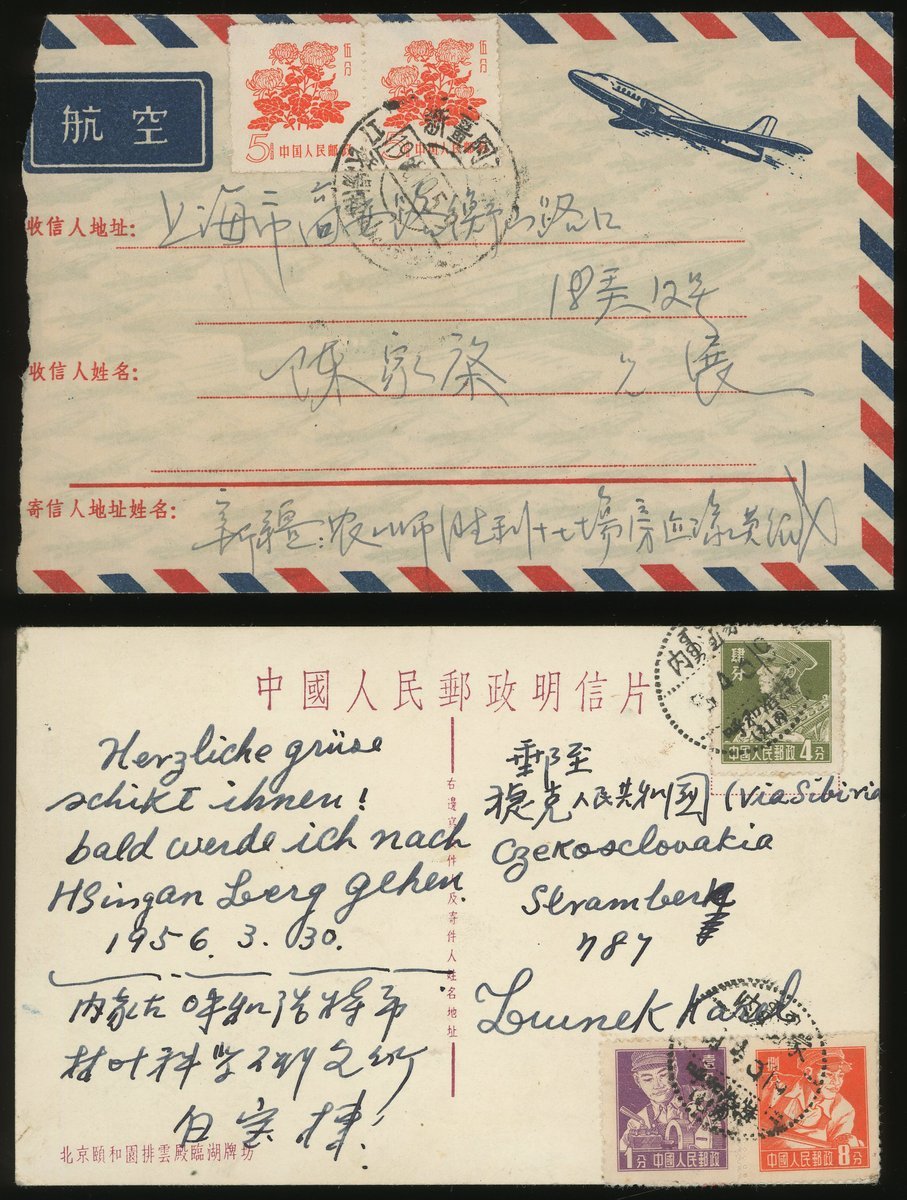 伍分
伍分
5分 中国人民邮政
5分 中国人民邮政
航空
新疆
收信人地址: 上海市
18弄12号
收信人姓名: 陈家
寄信人地址姓名: 新疆:农一师胜利十七場
中國人民郵政明信片
肆分
中國人民郵政 4分
Herzliche grüse
schikt ihnen!
bald werde ich nach
HSingan Berg gehen.
1956. 3. 30.
内蒙古 呼和浩特市
林叶科学研究所
白宝
北京頤和園排雲殿臨湖牌坊
右邊寫收件人及寄件人姓名地址
郵至
捷克人民共和國 (via Sibiria
Czekosclovakia
Stramberk
787
Lunek Karel
壹
1分 中國人民郵政
捌
中國人民郵政 8分